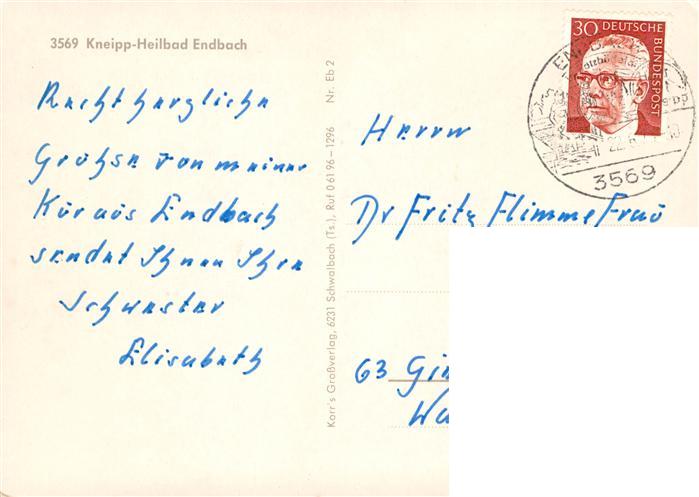 3569 Kneipp-Heilbad Endbach
Recht herzliche
Grüße von meiner
Kur aus Endbach
sendet Ihnen Ihre
Schwester
Elisabeth
Korr's Großverlag, 6231 Schwalbach (Ts.), Ruf 0 61 96 – 1296 Nr. Eb 2
30 DEUTSCHE
BUNDESPOST
3569
Herrn
Dr Fritz Flimme Frau
63